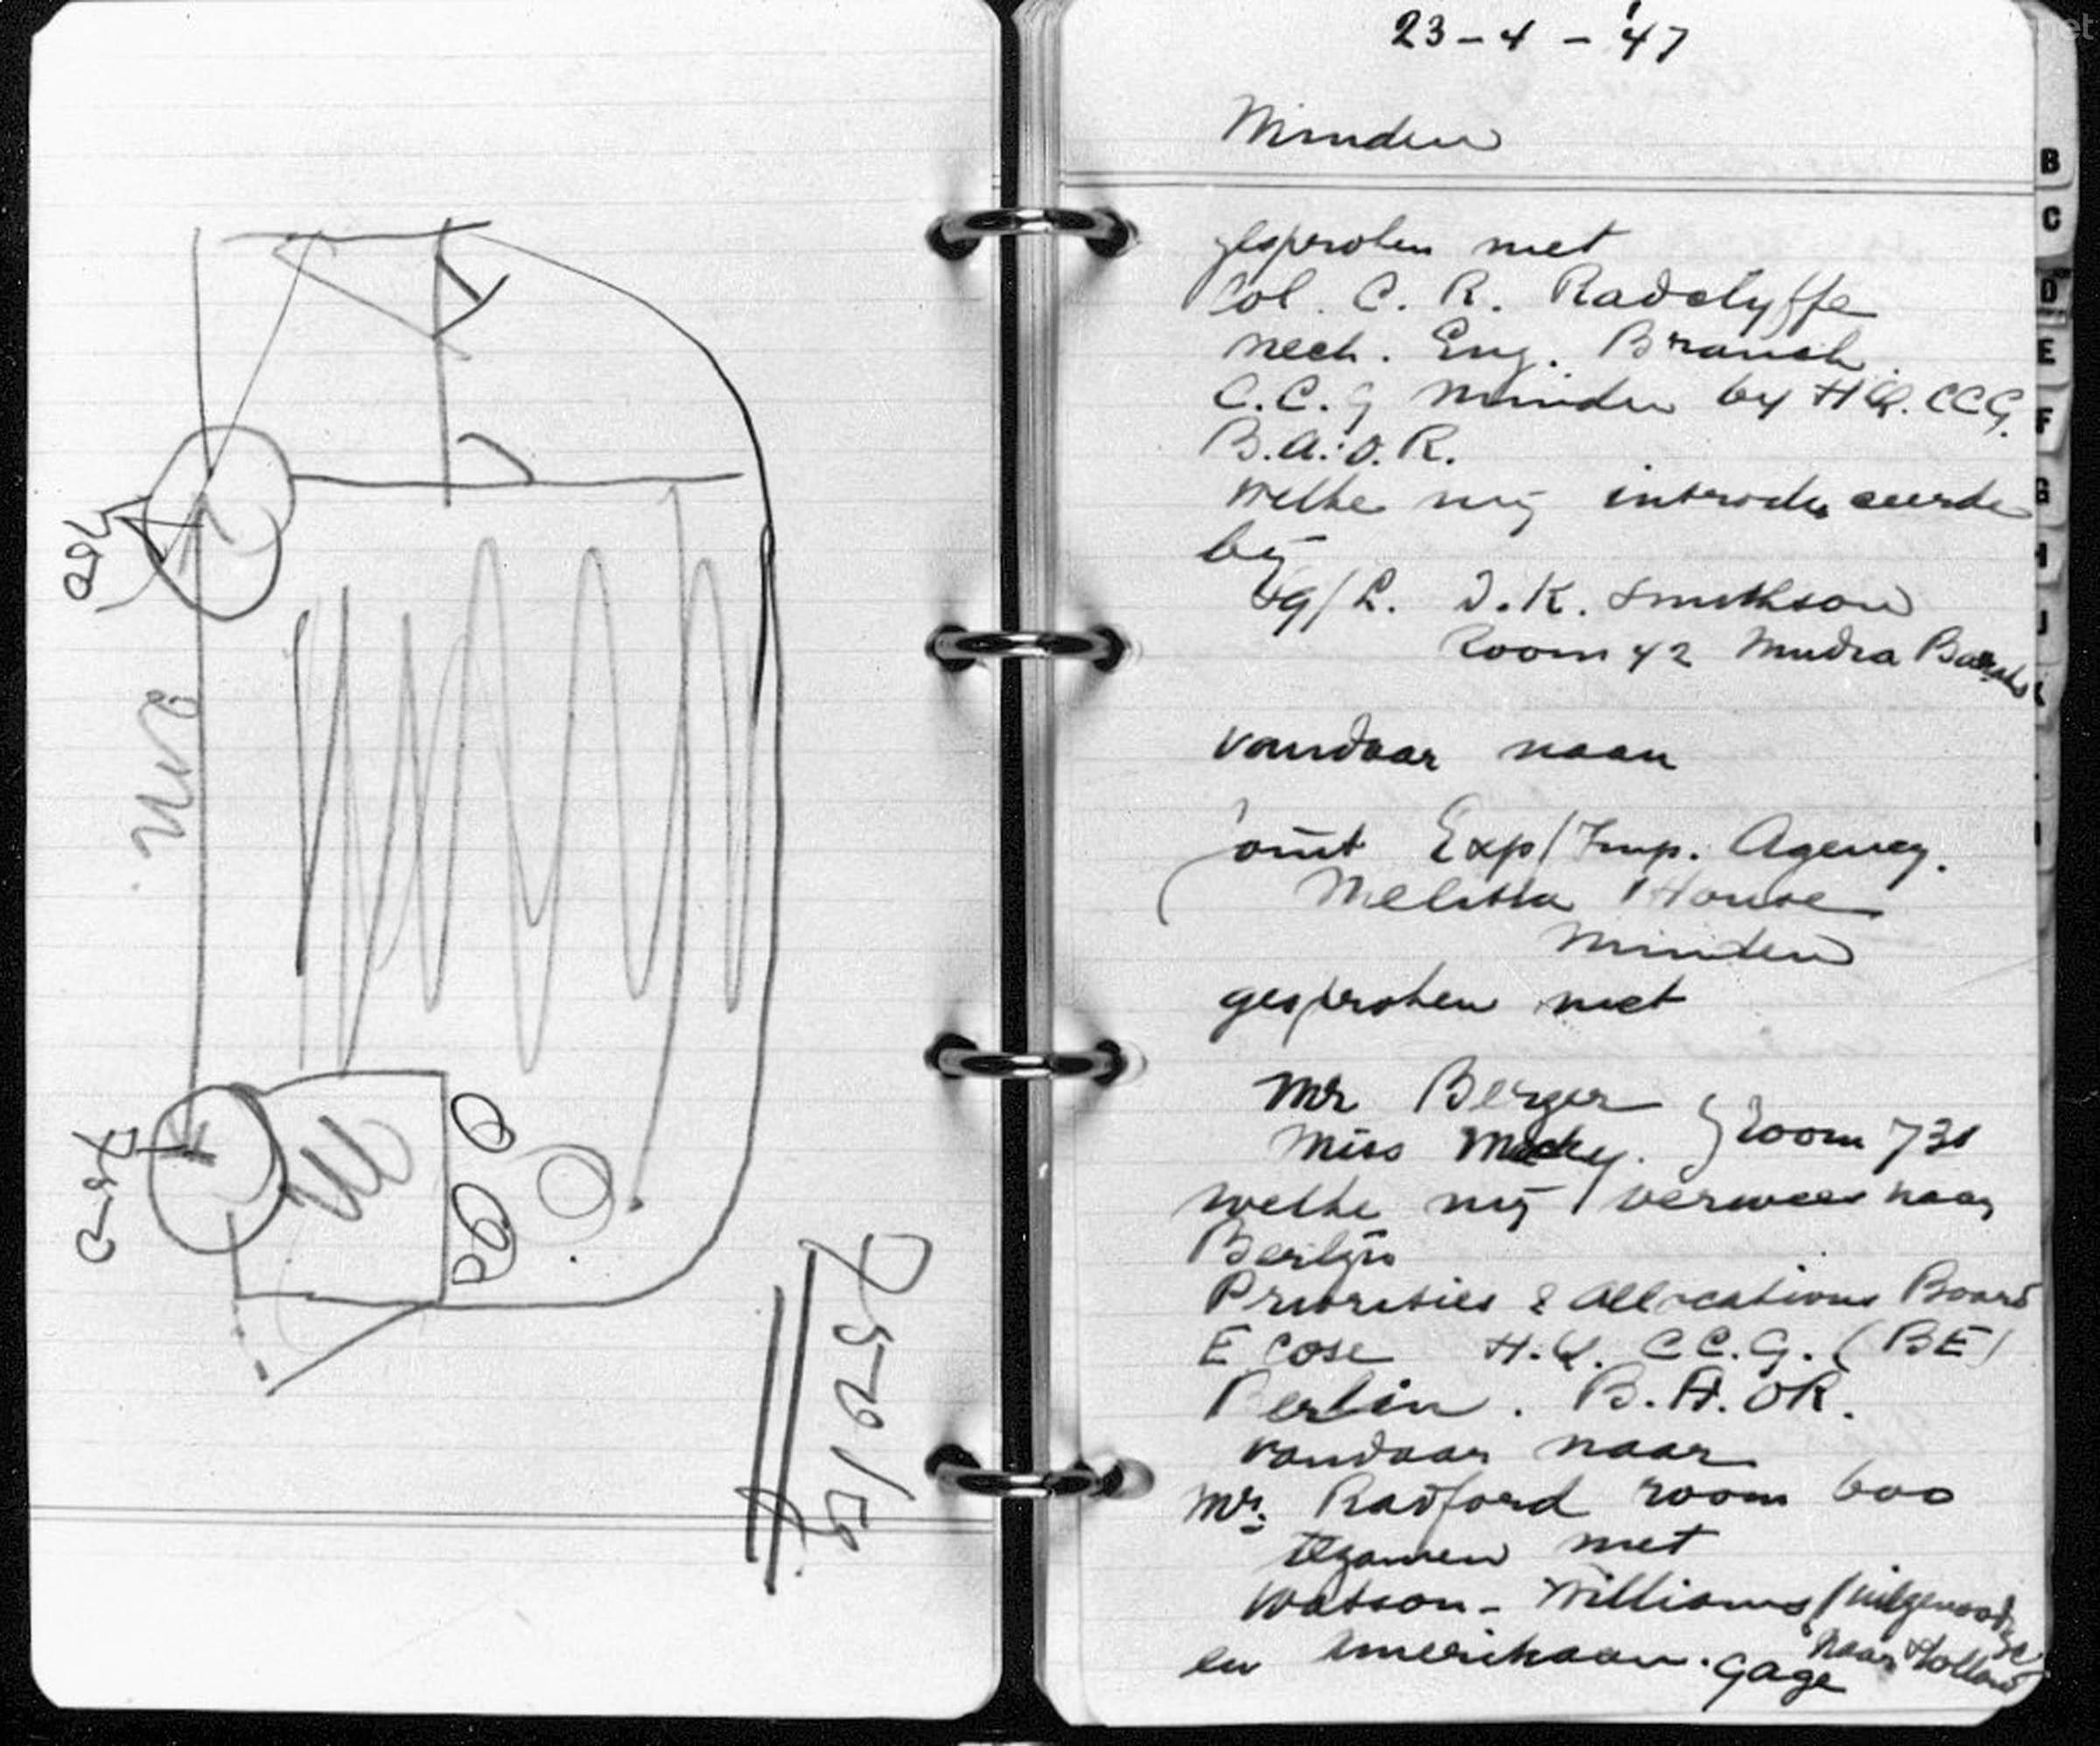 23-4-'47
Minden
gesproken met
Col. C. R. Radclyffe
Mech. Eng. Branch.
C.C.G Minden by HQ. CCG.
B.A.O.R.
welke mij introduceerde
bij
J.K. Smithson
Room 42 Mudra Barracks
vandaar naar
Joint Exp/Imp. Agency.
Melitta House
Minden
gesproken met
Mr Berger
Miss Micky. } Room 731
welke mij verwees naar
Berlijn
Priorities & Allocations Board
E Cose H.Q. C.C.G. (BE)
Berlin. B.A.OR.
vandaar naar
Mr. Radford room 600
tezamen met
Watson-Williams (uitgenoodigd
naar Holland
en Amerikaan. Gage
750